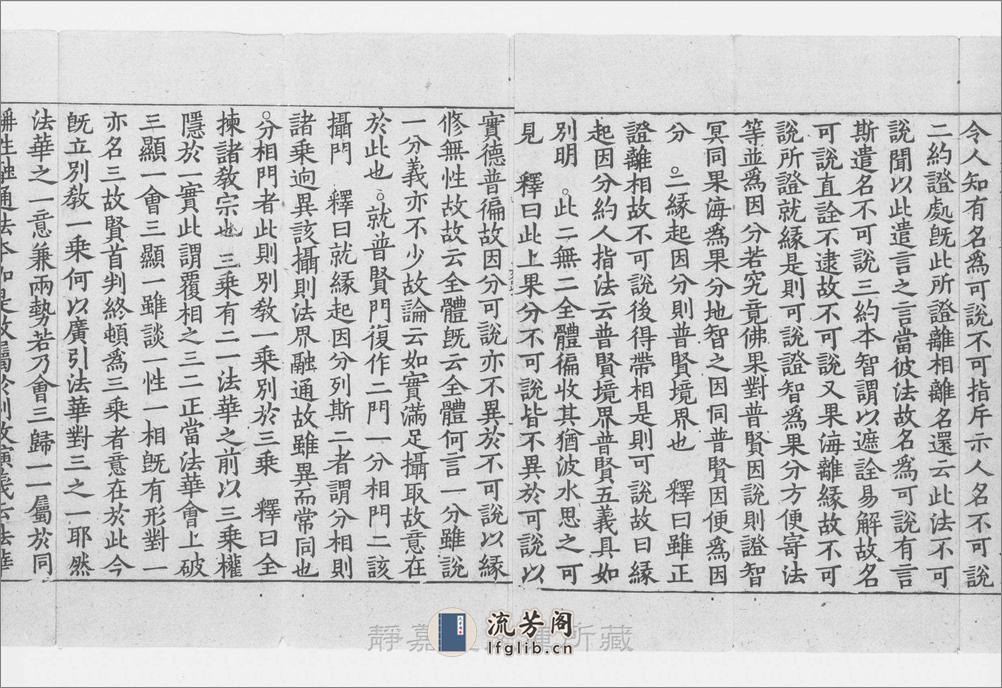 令人知有名爲可說不可指斥示人名不可說
二約證處旣此所證離相離名還云此法不可
說聞以此遣言之言當彼法故名爲可說有言
斯遣名不可說三約本智謂以遮詮易解故名
可說直詮不逮故不可說又果海離緣故不可
說所證就緣是則可說證智爲果分方便寄法
等並爲因分若究竟佛果對普賢因說則證智
冥同果海爲果分地智之因同普賢因便爲因
分 。二緣起因分則普賢境界也 釋曰雖正
證離相故不可說後得帶相是則可說故曰緣
起因分約人指法云普賢境界普賢五義具如
別明 。此二無二全體徧收其猶波水思之可
見 釋曰此上果分不可說皆不異於可說以
實德普徧故因分可說亦不異於不可說以緣
修無性故故云全體旣云全體何言一分雖說
一分義亦不少故論云如實滿足攝取故意在
於此也 。就普賢門復作二門一分相門二該
攝門 釋曰就緣起因分列斯二者謂分相則
諸乘逈異該攝則法界融通故雖異而常同也
。分相門者此則別敎一乘別於三乘 釋曰全
揀諸敎宗也 三乘有二一法華之前以三乘權
隱於一實此謂覆相之三二正當法華會上破
三顯一會三顯一雖談一性一相旣有形對一
亦名三故賢首判終頓爲三乘者意在於此今
旣立別敎一乘何以廣引法華對三之一耶然
法華之一意兼兩勢若乃會三歸一一屬於同
流芳阁
lfglib.cn
靜嘉 所藏